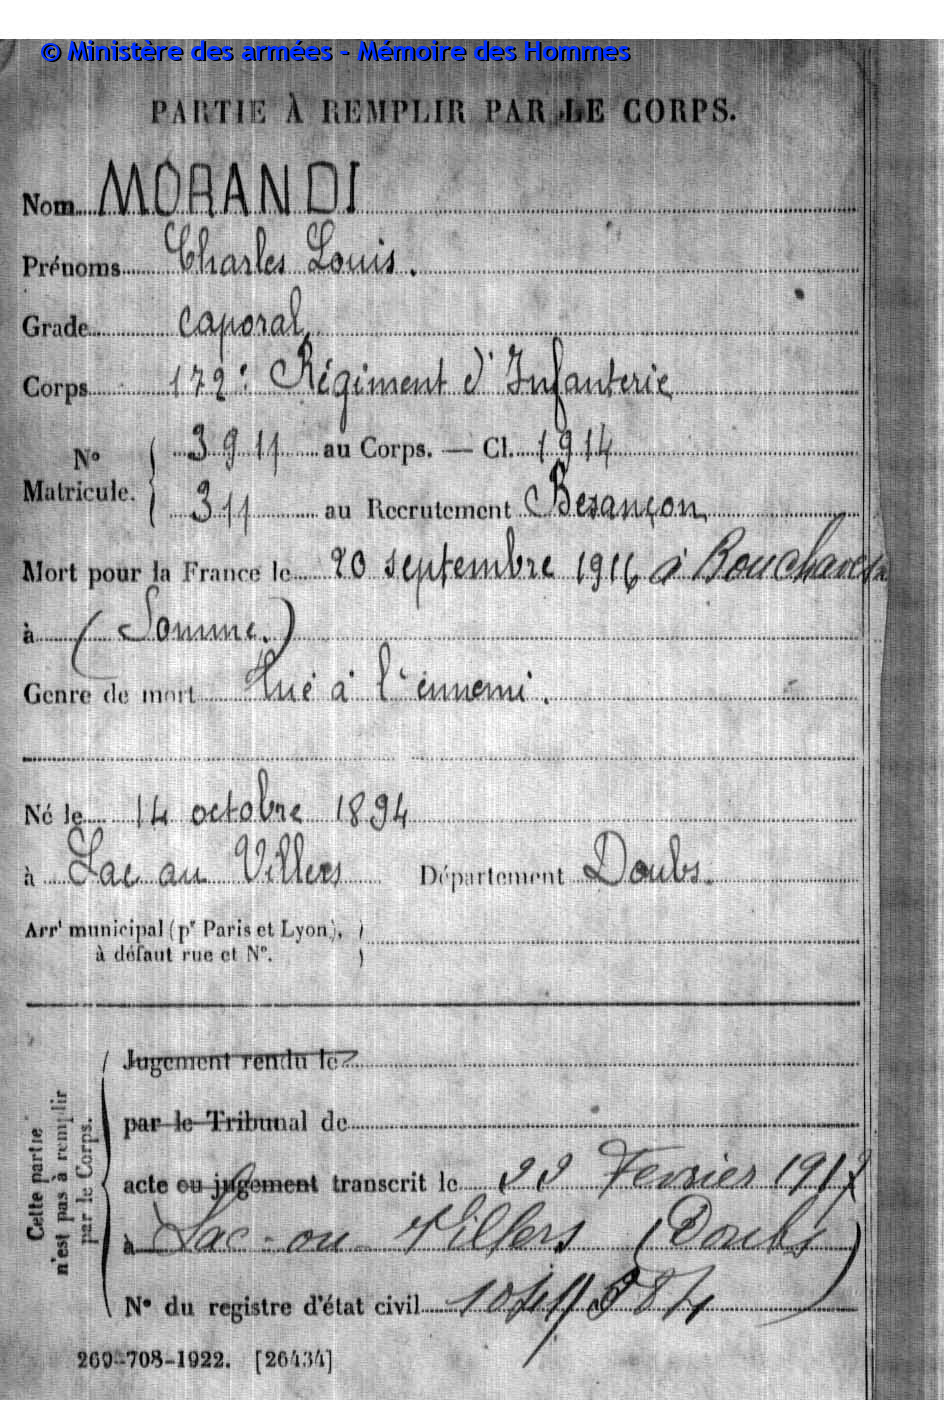 © Ministère des armées - Mémoire des Hommes
PARTIE À REMPLIR PAR LE CORPS.
Nom MORANDI
Prénoms Charles Louis.
Grade caporal
Corps 172e Régiment d'Infanterie
N° Matricule. 3911 au Corps. — Cl. 1914
311 au Recrutement Besançon
Mort pour la France le 20 septembre 1916 à Bouchavesnes
à (Somme.)
Genre de mort tué à l'ennemi.
Né le 14 octobre 1894
à Lac au Villers Département Doubs.
Arrt municipal (pr Paris et Lyon),
à défaut rue et N°.
Cette partie n'est pas à remplir par le Corps.
Jugement rendu le
par le Tribunal de
acte ou jugement transcrit le 22 Fevrier 1917
à Lac-ou-Villers (Doubs)
N° du registre d'état civil
260-708-1922. [26434]